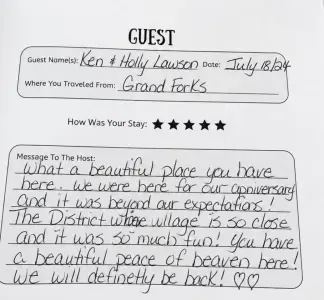 GUEST
Guest Name(s): Ken & Holly Lawson Date: July 18/24
Where You Traveled From: Grand Forks
How Was Your Stay: ★★★★★
Message To The Host:
What a beautiful place you have
here. We were here for our anniversary
and it was beyond our expectations!
The District wine village is so close
and it was so much fun! You have
a beautiful peace of heaven here!
We will definetly be back! ♡♡